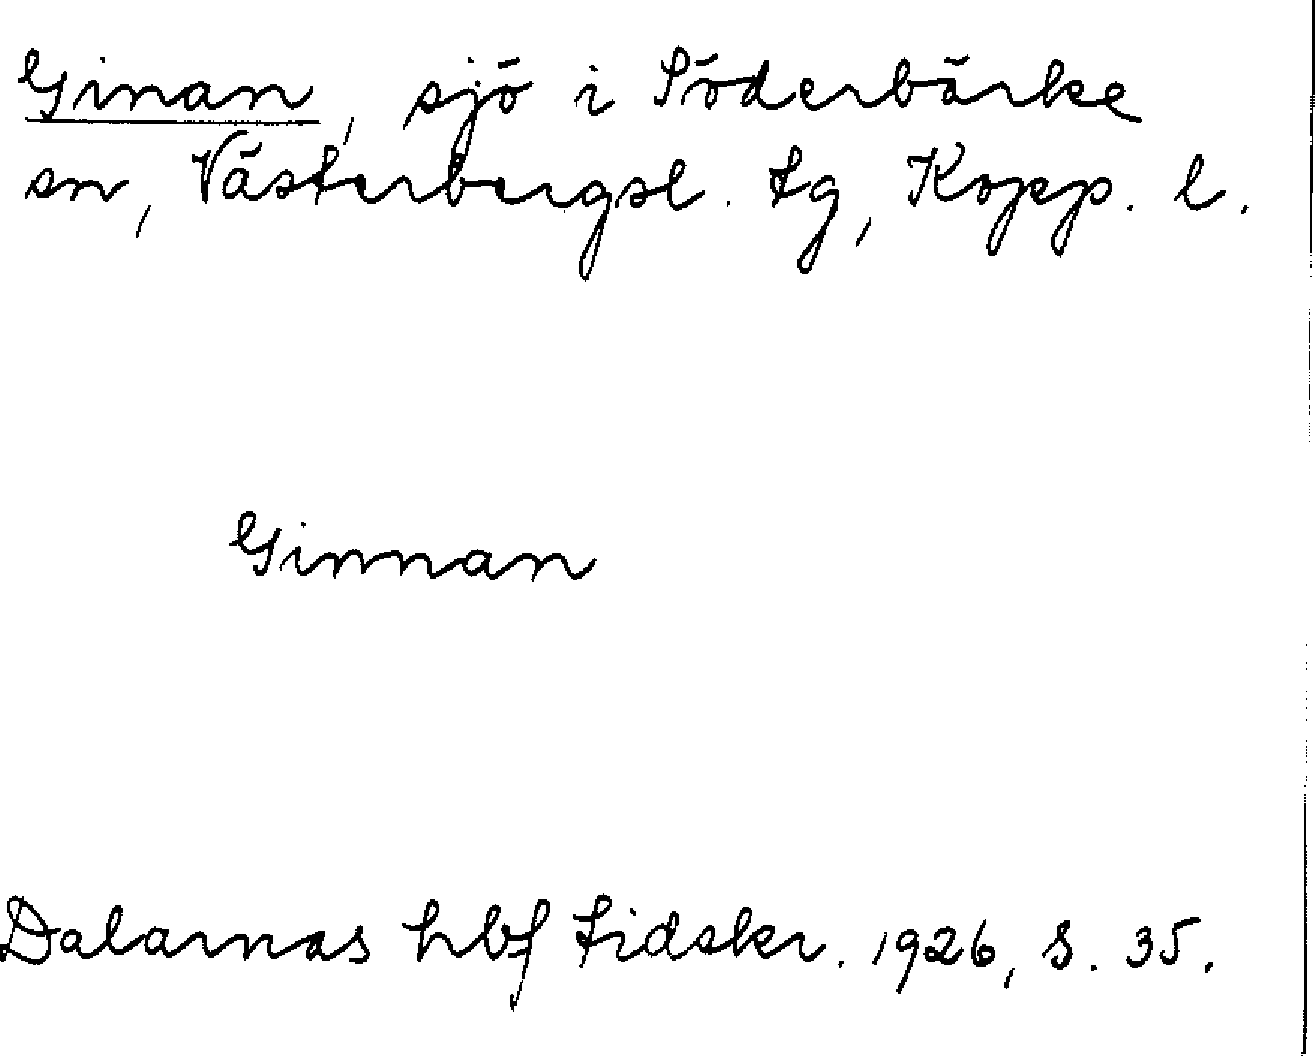 Ginan, sjö i Söderbärke
sn, Västerbergsl. tg, Kopp. l.
Ginnan
Dalarnas hbf tidskr. 1926, s. 35.